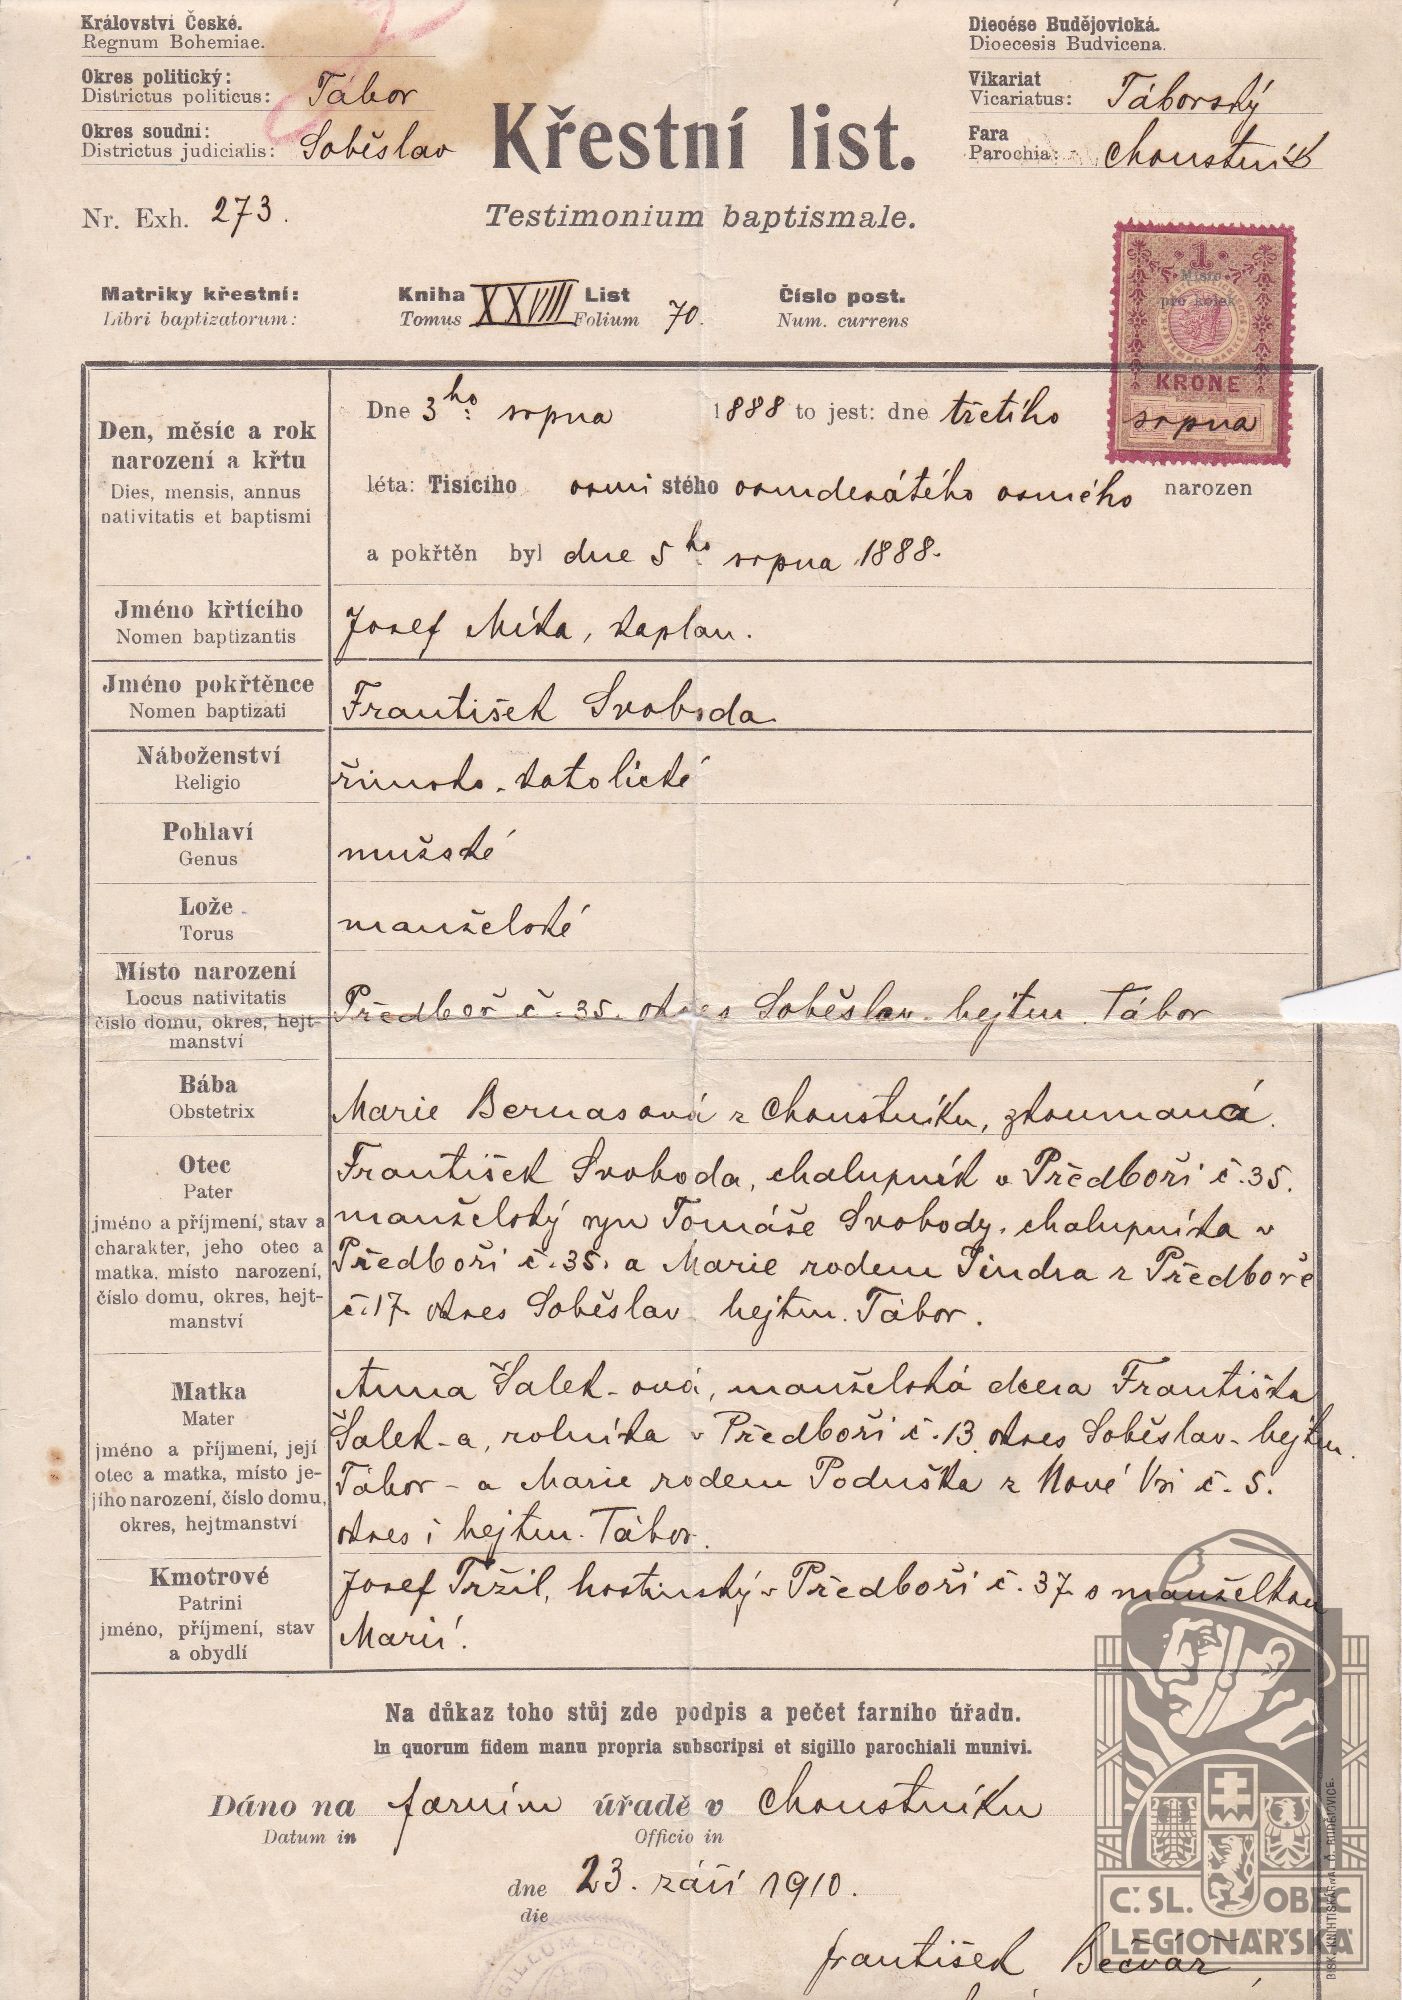 Království České.
Regnum Bohemiae.
Okres politický: Tábor
Districtus politicus:
Okres soudní: Soběslav
Districtus judicialis:
Nr. Exh. 273.
Diecése Budějovická.
Dioecesis Budvicena.
Vikariat Táborský
Vicariatus:
Fara Choustník
Parochia:
Křestní list.
Testimonium baptismale.
1
Místo
pro kolek
KRONE
Matriky křestní: Kniha XXVIII List 70. Číslo post.
Libri baptizatorum: Tomus Folium Num. currens
Den, měsíc a rok
narození a křtu
Dies, mensis, annus
nativitatis et baptismi
Dne 3ho srpna 1888 to jest: dne třetího srpna
léta: Tisícího osmi stého osmdesátého osmého narozen
a pokřtěn byl dne 5ho srpna 1888.
Jméno křtícího
Nomen baptizantis
Josef Míka, kaplan.
Jméno pokřtěnce
Nomen baptizati
František Svoboda
Náboženství
Religio
římsko-katolické
Pohlaví
Genus
mužské
Lože
Torus
manželské
Místo narození
Locus nativitatis
číslo domu, okres, hejt-
manství
Předboř č. 35. okres Soběslav. hejtm. Tábor
Bába
Obstetrix
Marie Bernasová z Choustníku, zkoumaná.
Otec
Pater
jméno a příjmení, stav a
charakter, jeho otec a
matka, místo narození,
číslo domu, okres, hejt-
manství
František Svoboda, chalupník v Předboři č. 35.
manželský syn Tomáše Svobody, chalupníka v
Předboři č. 35. a Marie rodem Jindra z Předboře
č. 17. okres Soběslav hejtm. Tábor.
Matka
Mater
jméno a příjmení, její
otec a matka, místo je-
jího narození, číslo domu,
okres, hejtmanství
Anna Šalek-ová, manželská dcera Františka
Šalek-a, rolníka v Předboři č. 13. okres Soběslav- hejtm.
Tábor - a Marie rodem Poduška z Nové Vsi č. 5.
okres i hejtm. Tábor.
Kmotrové
Patrini
jméno, příjmení, stav
a obydlí
Josef Tržil, hostinský v Předboři č. 37 s manželkou
Marií.
Na důkaz toho stůj zde podpis a pečet farního úřadu.
In quorum fidem manu propria subscripsi et sigillo parochiali munivi.
Dáno na farním úřadě v Choustníku
Datum in Officio in
dne 23. září 1910.
die
František Bečvář,
Č.SL. OBEC
LEGIONÁŘSKÁ
BISK. KNIHTISKÁRNA, Č. BUDĚJOVICE.